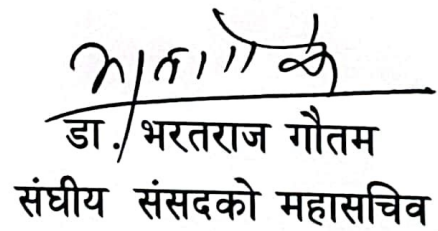 डा. भरतराज गौतम
संघीय संसदको महासचिव